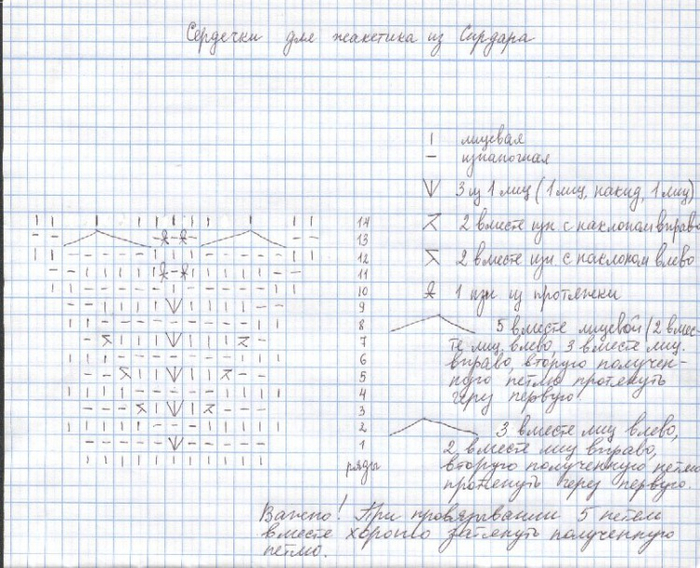 Сердечки для жакетика из Сирдара
| лицевая
– изнаночная
V 3 из 1 лиц (1 лиц, накид, 1 лиц)
2 вместе изн с наклоном вправо
2 вместе изн с наклоном влево
1 изн из протяжки
5 вместе лицевой (2 вмес-
те лиц влево, 3 вместе лиц.
вправо, вторую получен-
ную петлю протянуть
через первую
3 вместе лиц влево,
2 вместе лиц вправо,
вторую полученную петлю
протянуть через первую.
14
13
12
11
10
9
8
7
6
5
4
3
2
1
ряды
Важно! При провязывании 5 петель
вместе хорошо затянуть полученную
петлю.